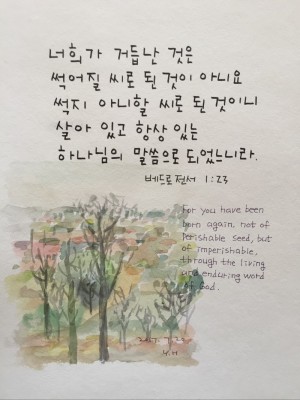 너희가 거듭난 것은
썩어질 씨로 된 것이 아니요
썩지 아니할 씨로 된 것이니
살아 있고 항상 있는
하나님의 말씀으로 되었느니라.
베드로전서 1:23
For you have been
born again, not of
perishable seed, but
of imperishable,
through the living
and enduring word
of God.
Y.H